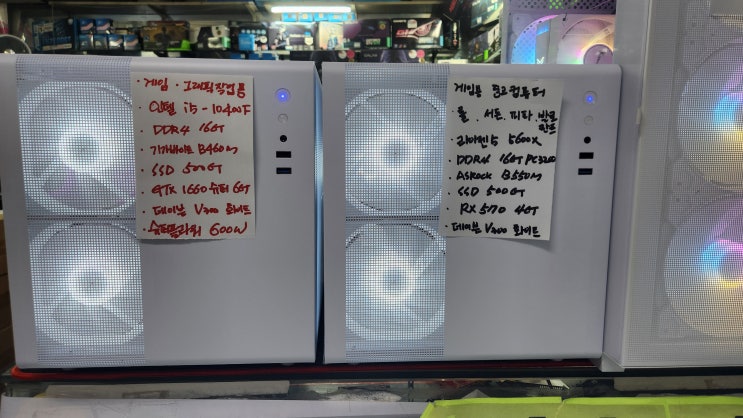 · 게임 · 그래픽작업용
· 인텔 i5 - 10400F
· DDR4 16GT
· 기가바이트 B460M
· SSD 500GT
· GTX 1660 슈퍼 6GT
· 데이븐 V300 화이트
· 슈퍼플라워 600W
게임용 중고컴퓨터
· 롤 . 서든 . 피파 . 발로란트
· 라이젠5 5600X
· DDR4 16GT PC3200
· ASRock B550M
· SSD 500GT
· RX 570 4GT
· 데이븐 V300 화이트